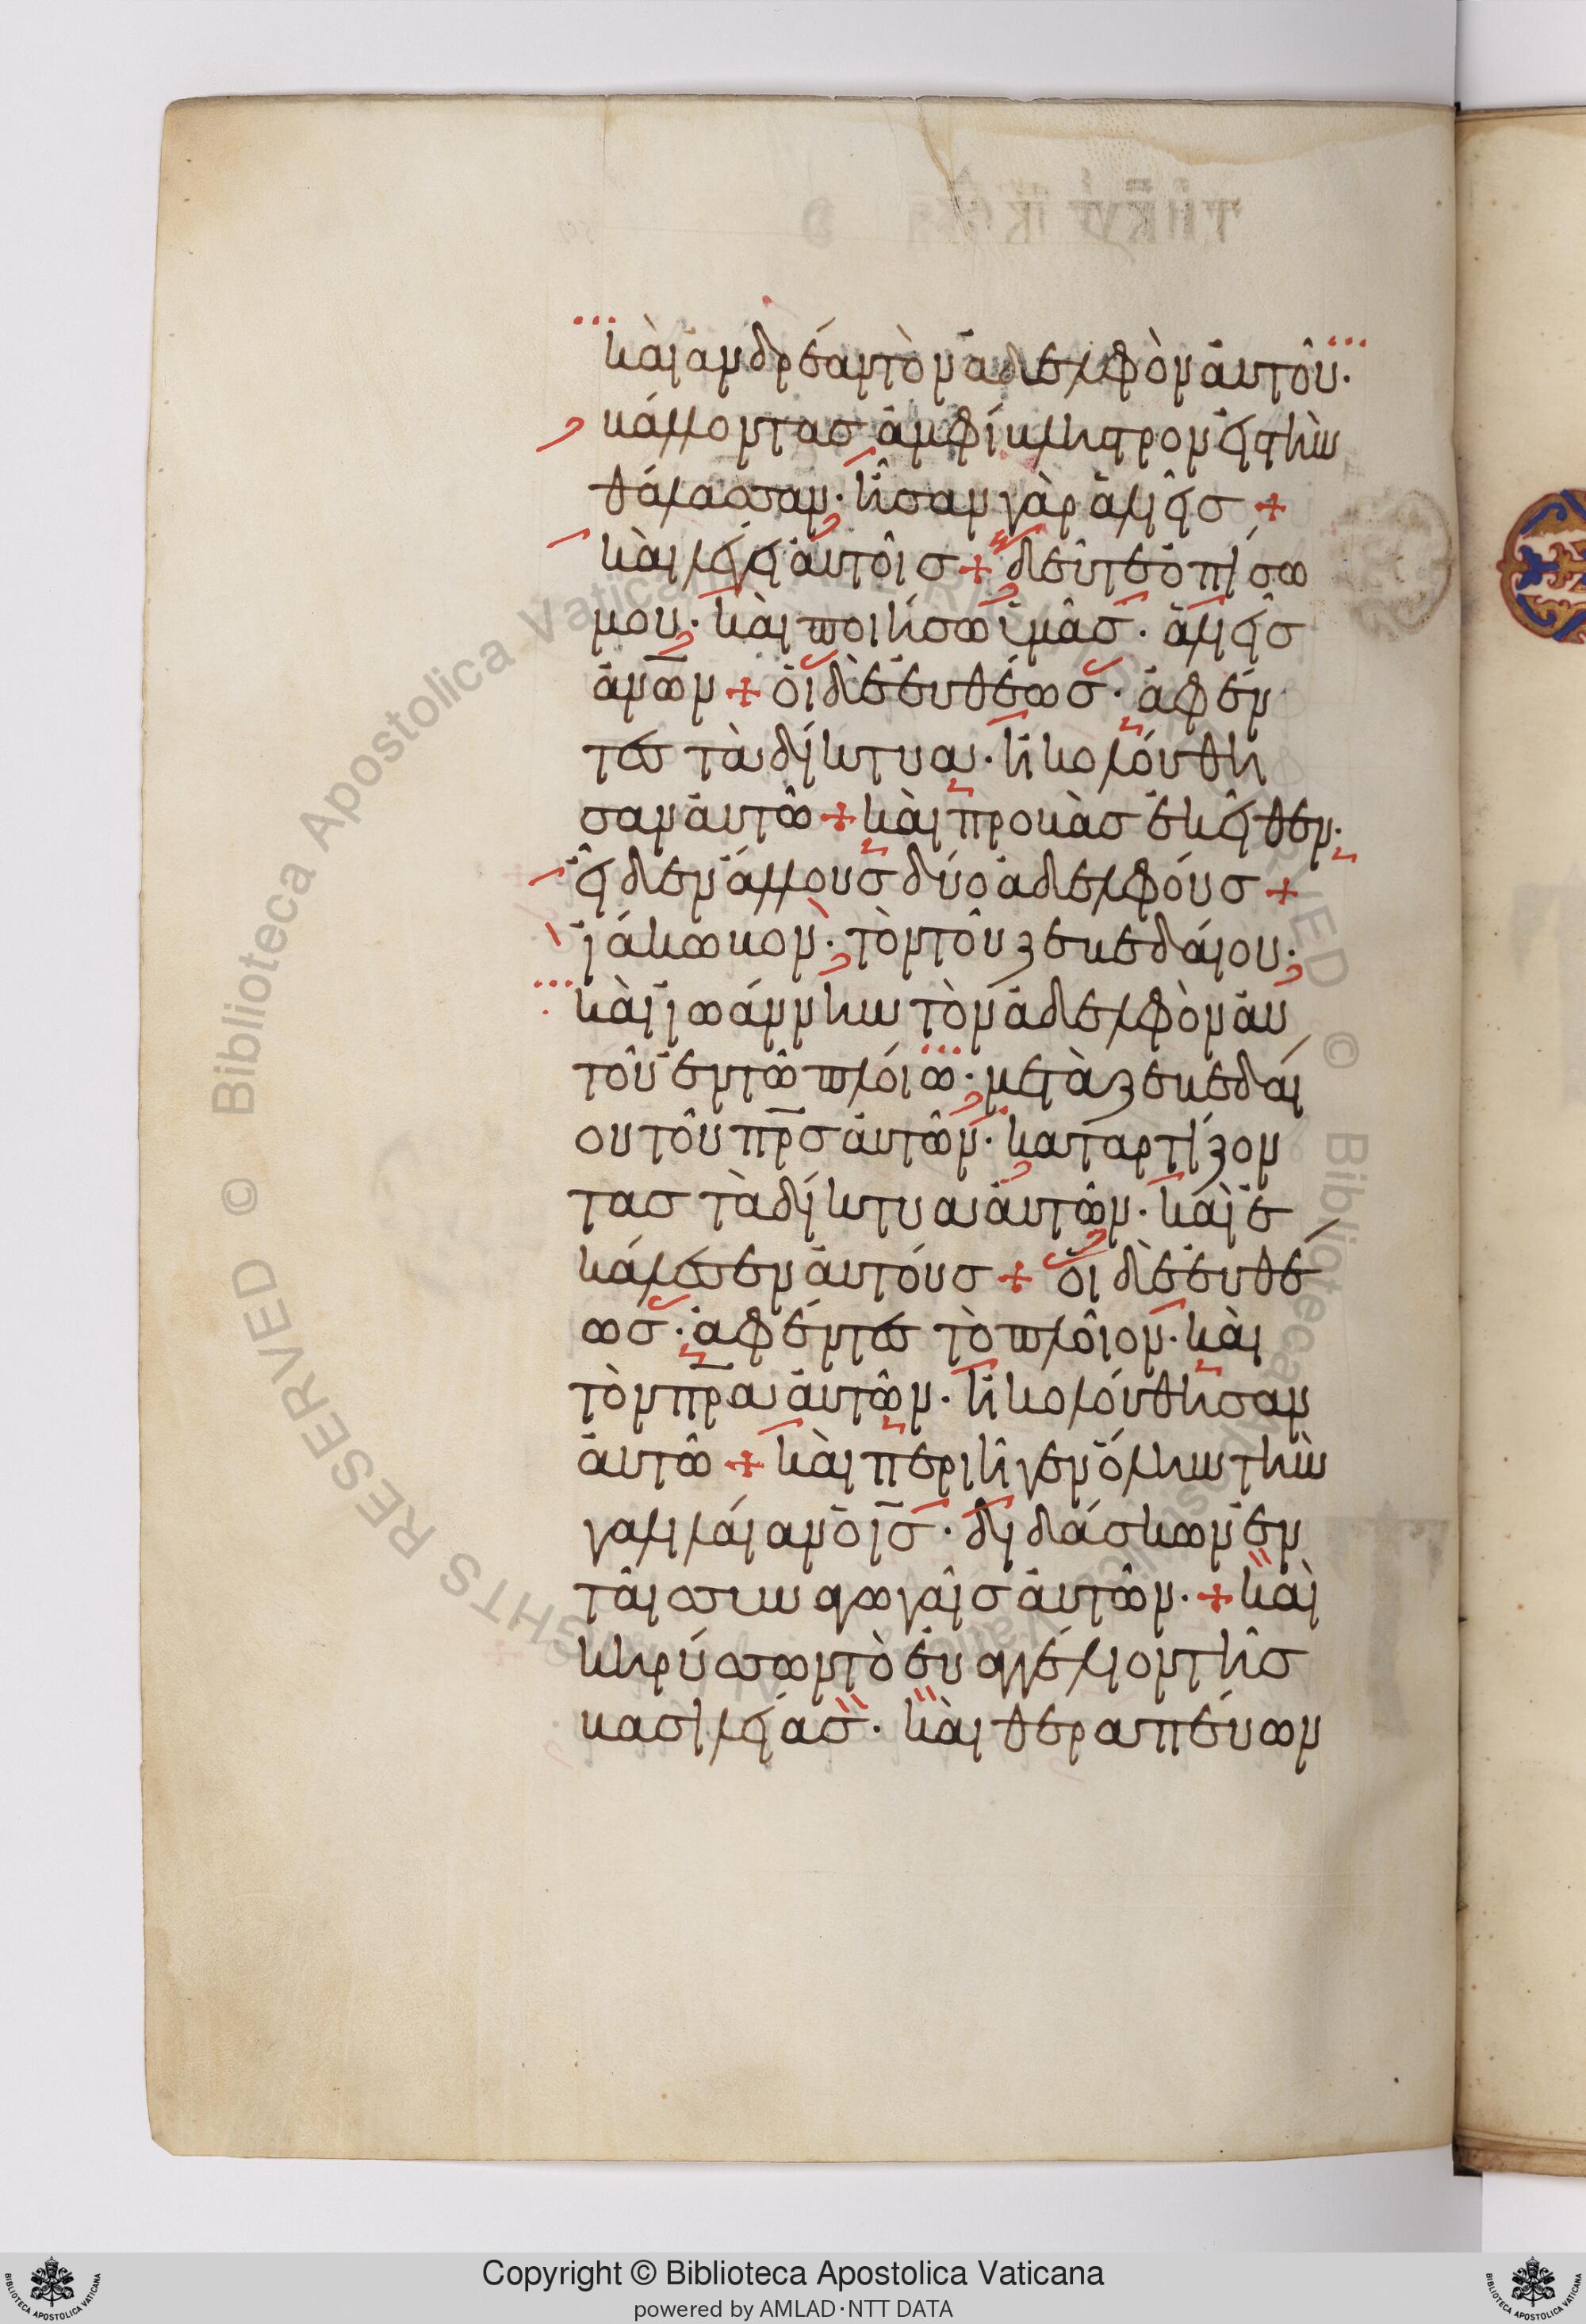 καὶ ἀνδρέαν τὸν ἀδελφὸν αὐτοῦ·
βάλλοντας ἀμφίβληστρον εἰς τὴν
θάλασσαν· ἦσαν γὰρ ἁλιεῖς +
καὶ λέγει αὐτοῖς + δεῦτε ὀπίσω
μου· καὶ ποιήσω ὑμᾶς· ἁλιεῖς
ἀνων + οἱ δὲ εὐθέως· ἀφέν
τες τὰ δίκτυα· ἠκολούθη
σαν αὐτῶ + καὶ προβὰς ἐκεῖθεν·
εἶδεν ἄλλους δύο ἀδελφούς +
ἰάκωβον· τὸν τοῦ ζεβεδαίου·
καὶ ἰωάννην τὸν ἀδελφὸν αὐ
τοῦ ἐν τῶ πλοίω· μετὰ ζεβεδαί
ου τοῦ πρς αὐτῶν· καταρτίζον
τας τὰ δίκτυα αὐτῶν· καὶ ἐ
κάλεσεν αὐτούς + οἱ δὲ εὐθέ
ως· ἀφέντες τὸ πλοῖον· καὶ
τὸν πρα αὐτῶν· ἠκολούθησαν
αὐτῶ + καὶ περιῆγεν ὅλην τὴν
γαλιλαίαν ὁ ις· διδάσκων ἐν
ταῖς συναγωγαῖς αὐτῶν· + καὶ
κηρύσσων τὸ εὐαγγέλιον τῆς
βασιλείας· καὶ θεραπεύων
© Biblioteca Apostolica Vaticana
RIGHTS RESERVED © Biblioteca Apostolica Vaticana
Copyright © Biblioteca Apostolica Vaticana
powered by AMLAD·NTT DATA